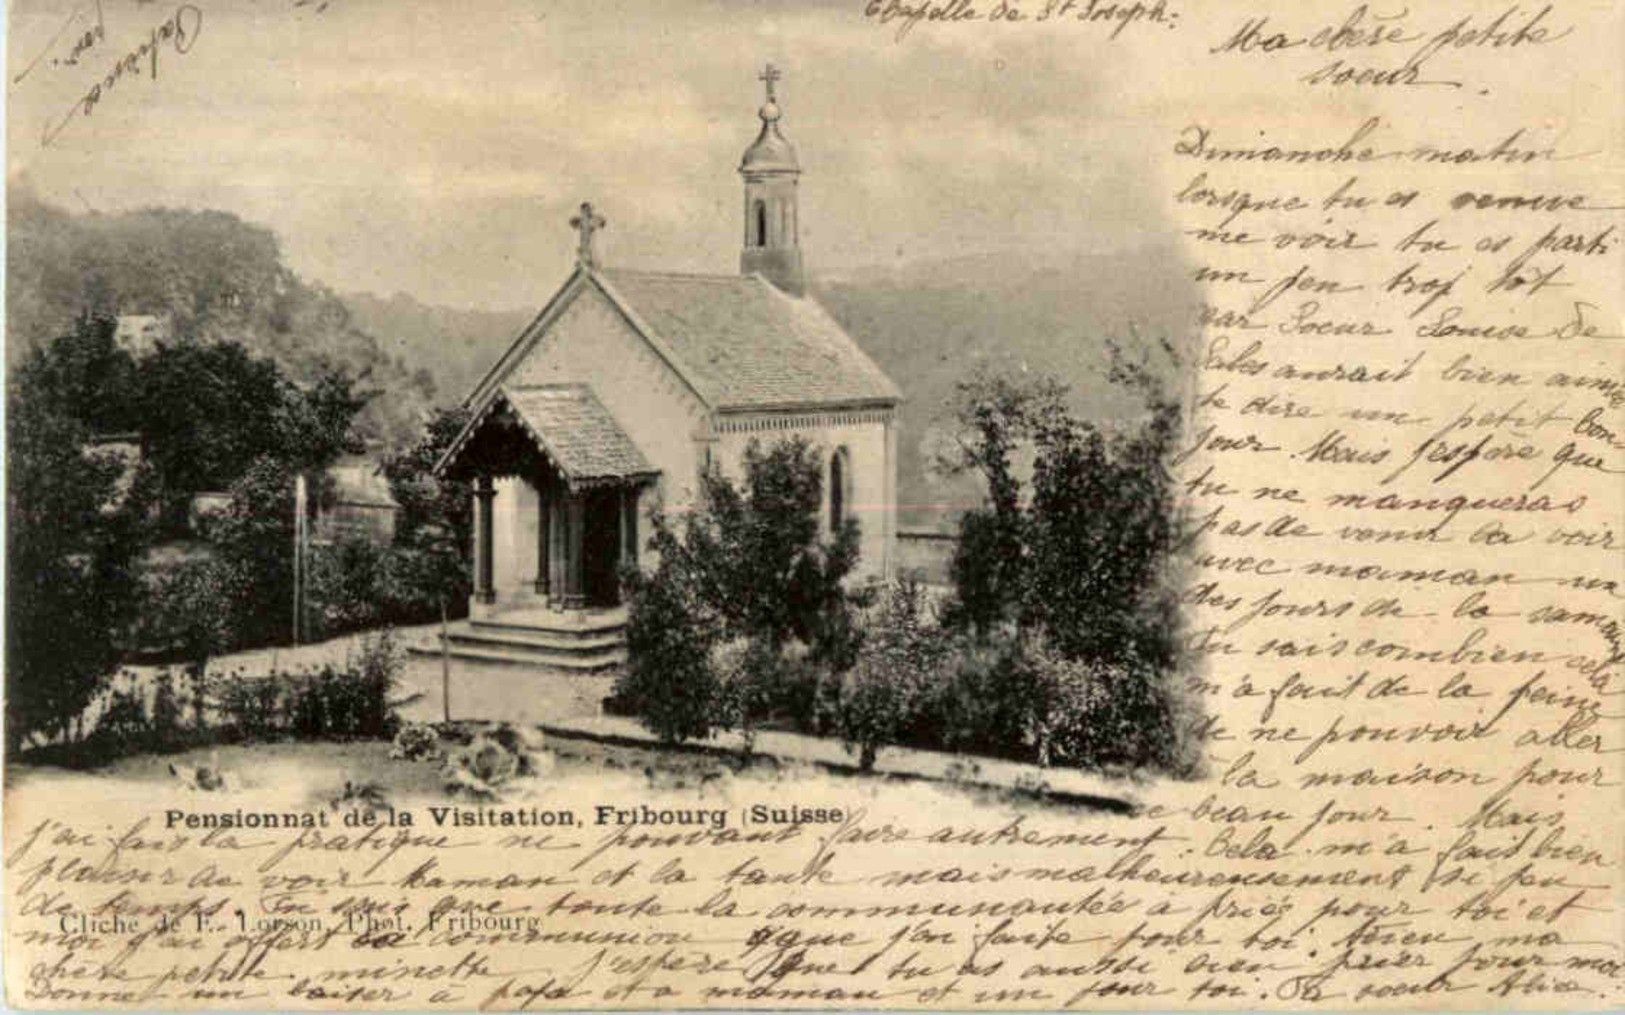 Chapelle de St Joseph:
Ma chère petite
soeur.
Dimanche matin
lorsque tu es venue
me voir tu es parti
un peu trop tôt
car Soeur Louise de
Sales aurait bien aimé
te dire un petit bon-
jour. Mais j'espère que
tu ne manqueras
pas de venir la voir
avec maman un
des jours de la
Tu sais combien cela
m'a fait de la peine
de ne pouvoir aller
la maison pour
ce beau jour. Mais
Pensionnat de la Visitation, Fribourg (Suisse)
j'ai fais la pratique ne pouvant faire autrement. Cela m'a fait bien
plaisir de voir Maman et la tante mais malheureusement si peu
de temps. Tu sais que toute la communautée a priés pour toi et
Cliché de F. Lorson, Phot. Fribourg
moi j'ai offert la communion que j'ai faite pour toi. Adieu ma
chère petite minette. J'espère que tu as aussi bien prier pour moi
Donne un baiser à papa et a maman et un pour toi. Ta soeur Alice.